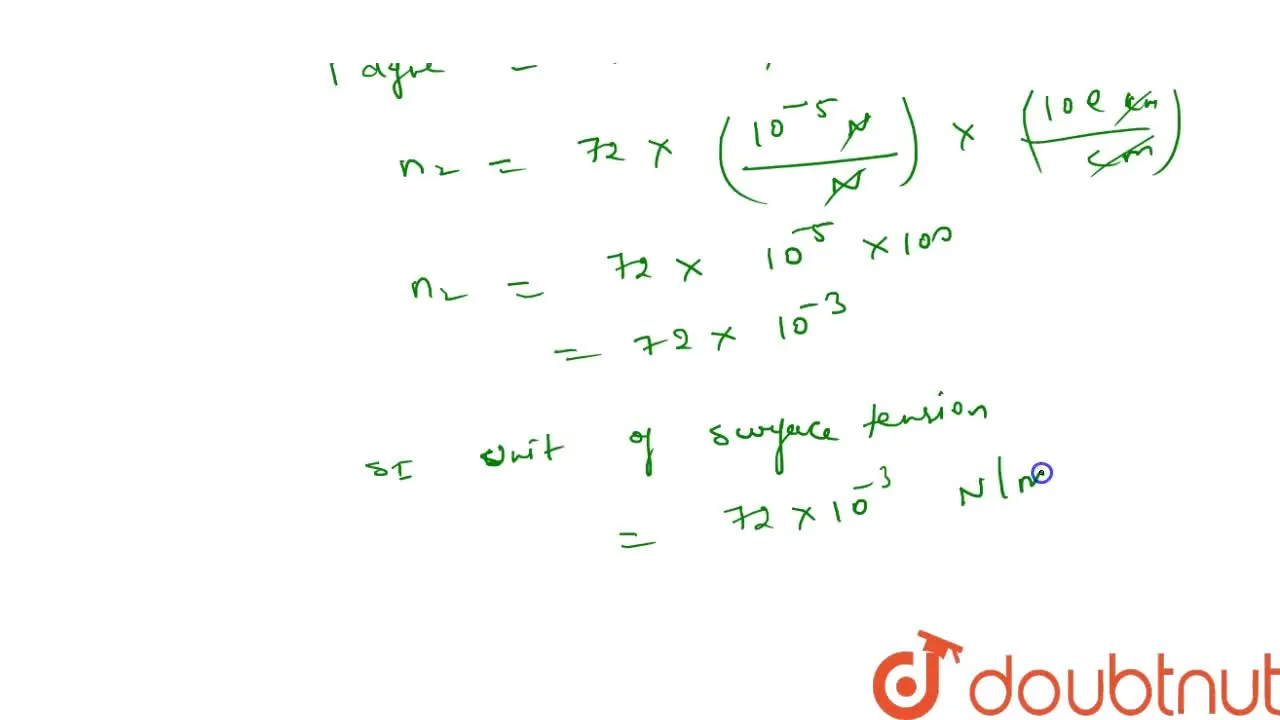 1 dyne =
n₂ = 72 × (10⁻⁵ N / N) × (100 cm / cm)
n₂ = 72 × 10⁻⁵ × 100
= 72 × 10⁻³
SI unit of surface tension
= 72 × 10⁻³ N/m
doubtnut